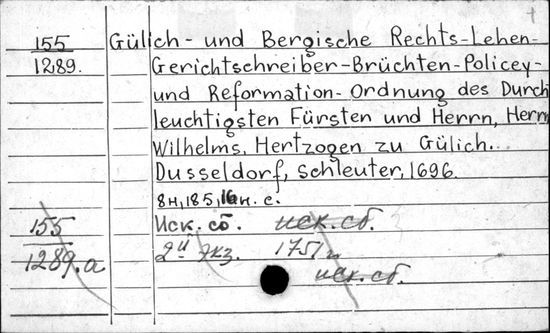 155 Gülich- und Bergische Rechts-Lehen-
1289. Gerichtschreiber-Brüchten-Policey-
und Reformation-Ordnung des Durch
leuchtigsten Fürsten und Herrn, Herrn
Wilhelms, Hertzogen zu Gülich..
Dusseldorf, Schleuter, 1696.
8н, 185, 16н. с.
155 Иск. сб. иск. сб.
1289.a 2й экз. 1751г
иск. сб.